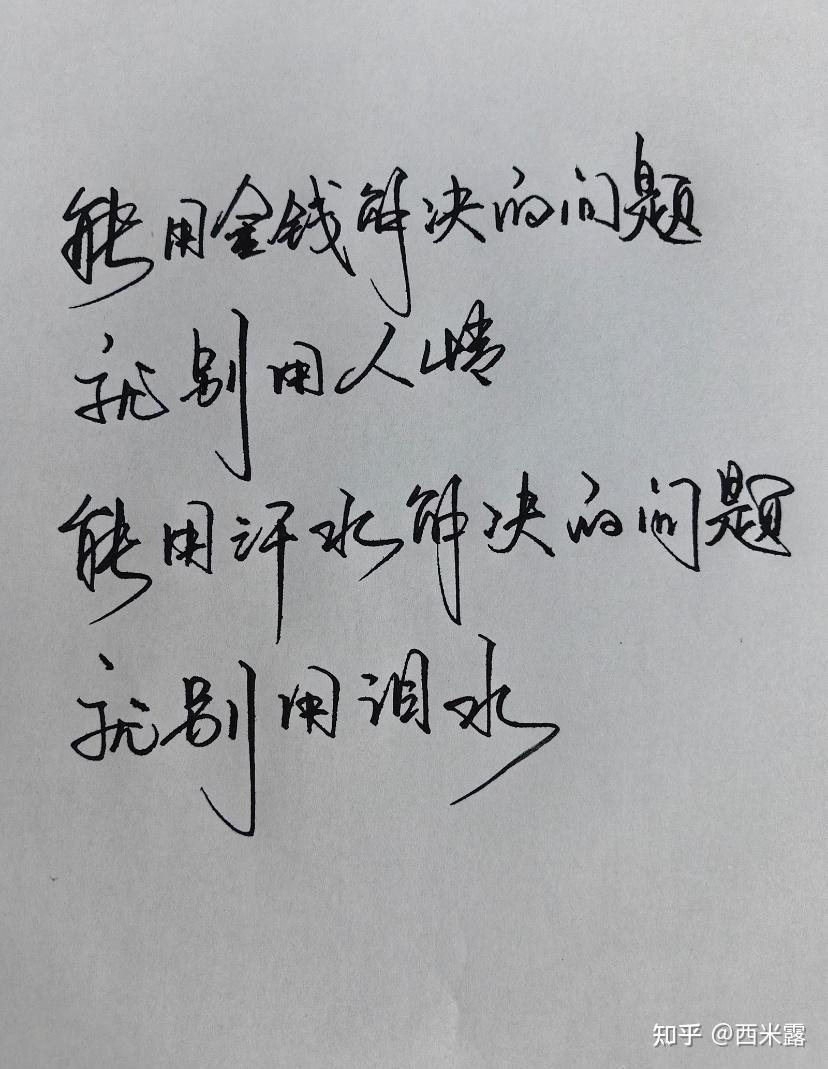 能用金钱解决的问题
就别用人情
能用汗水解决的问题
就别用泪水
知乎 @西米露